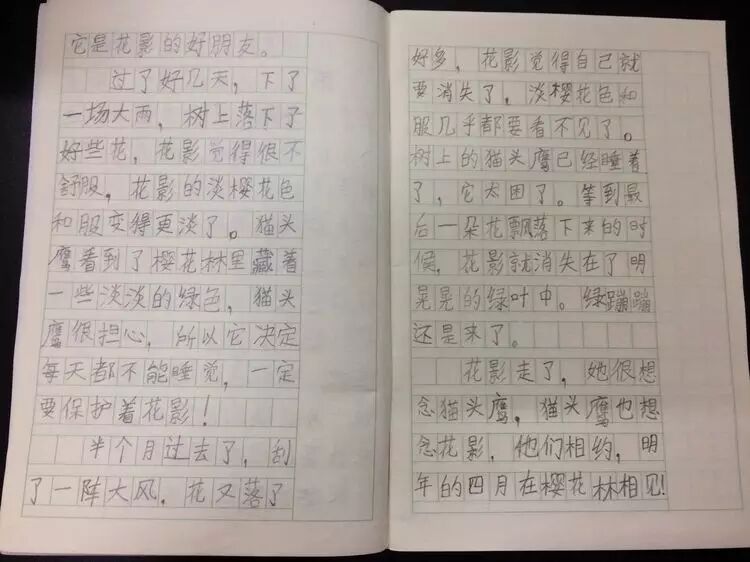 它是花影的好朋友。
过了好几天，下了
一场大雨，树上落下了
好些花，花影觉得很不
舒服，花影的淡樱花色
和服变得更淡了。猫头
鹰看到了樱花林里藏着
一些淡淡的绿色，猫头
鹰很担心，所以它决定
每天都不能睡觉，一定
要保护着花影！
半个月过去了，刮
了一阵大风，花又落了
好多，花影觉得自己就
要消失了，淡樱花色和
服几乎都要看不见了。
树上的猫头鹰已经睡着
了，它太困了。等到最
后一朵花飘落下来的时
候，花影就消失在了明
晃晃的绿叶中。绿蹦蹦
还是来了。
花影走了，她很想
念猫头鹰，猫头鹰也想
念花影，他们相约，明
年的四月在樱花林相见！